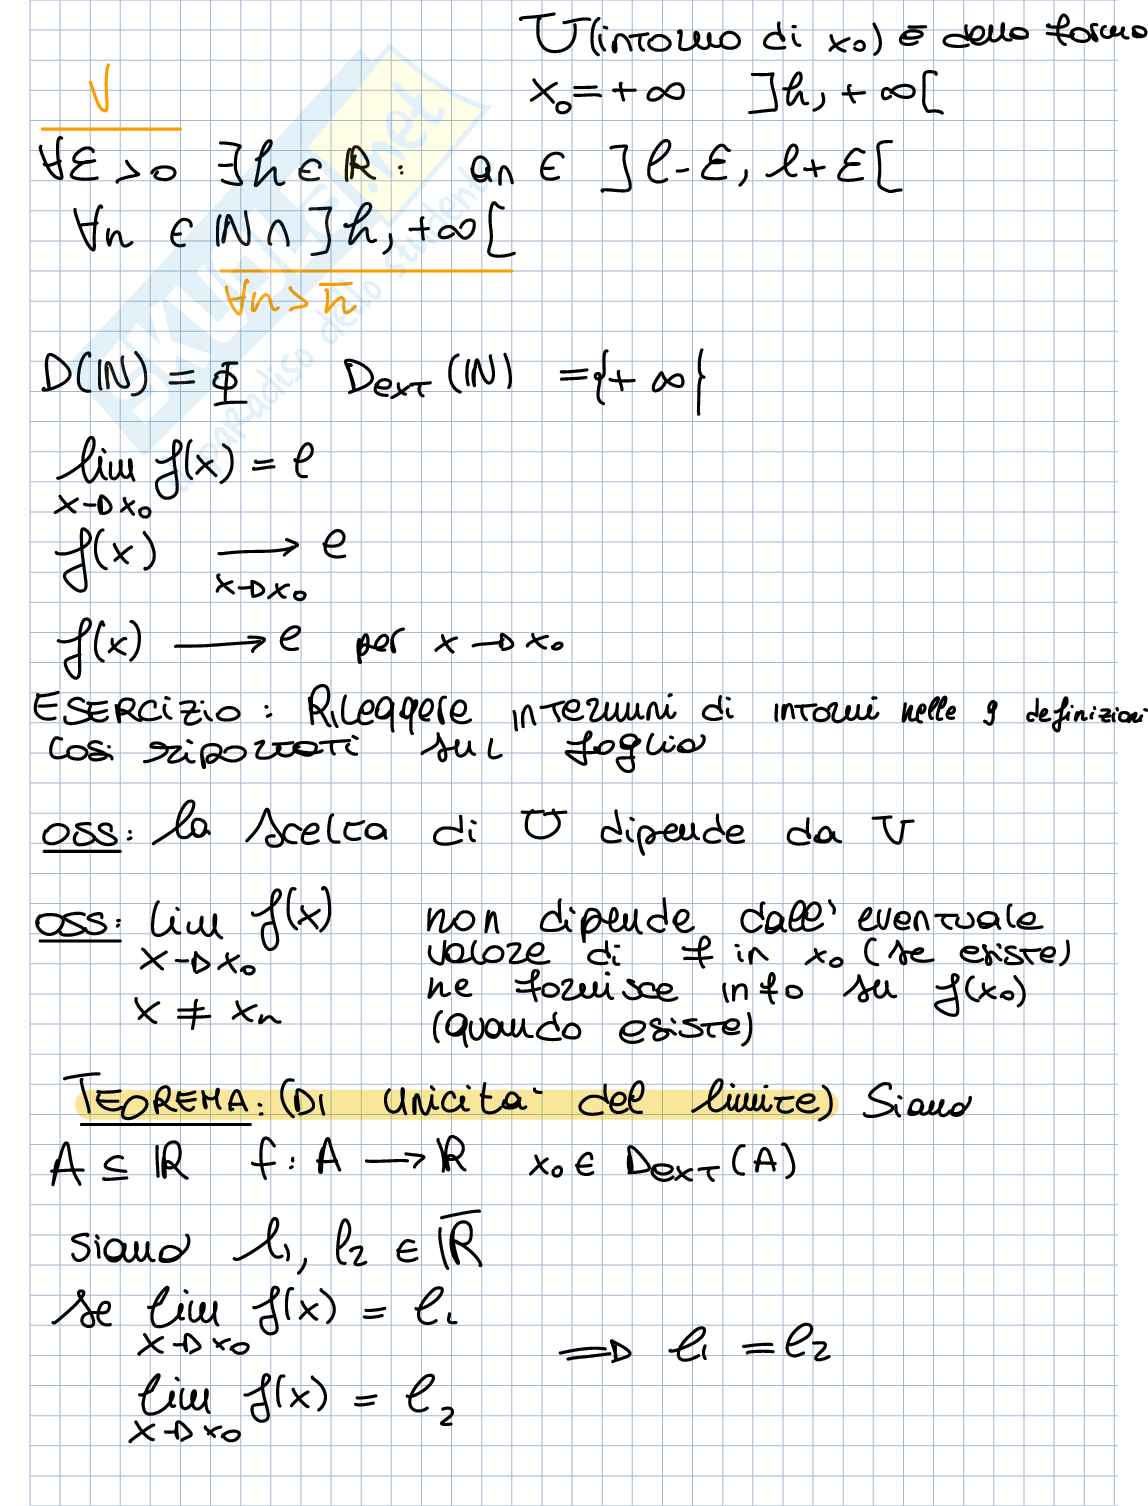 U (intorno di x₀) è della forma
x₀ = +∞ ]h, +∞[
V
∀ε > 0 ∃h ∈ ℝ : an ∈ ]l-ε, l+ε[
∀n ∈ ℕ ∩ ]h, +∞[
∀n > n̅
D(ℕ) = Φ Dext (ℕ) = {+∞}
lim f(x) = l
x→x₀
f(x) ⟶ l
x→x₀
f(x) ⟶ l per x → x₀
ESERCIZIO : Rileggere in termini di intorni nelle 9 definizioni
così riportati sul foglio
OSS: la scelta di U dipende da V
OSS: lim f(x) non dipende dall' eventuale
x→x₀ valore di f in x₀ (se esiste)
x ≠ xₙ ne fornisce info su f(x₀)
(quando esiste)
TEOREMA: (DI unicità del limite) Siano
A ⊆ ℝ f: A ⟶ ℝ x₀ ∈ Dext (A)
siano l₁, l₂ ∈ ℝ̅
se lim f(x) = l₁
x→x₀
⟹ l₁ = l₂
lim f(x) = l₂
x→x₀